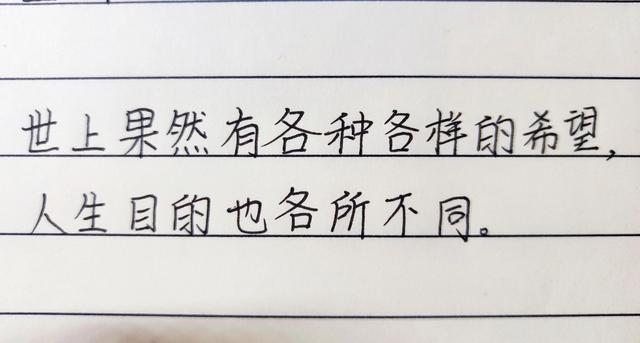 世上果然有各种各样的希望,
人生目的也各所不同。